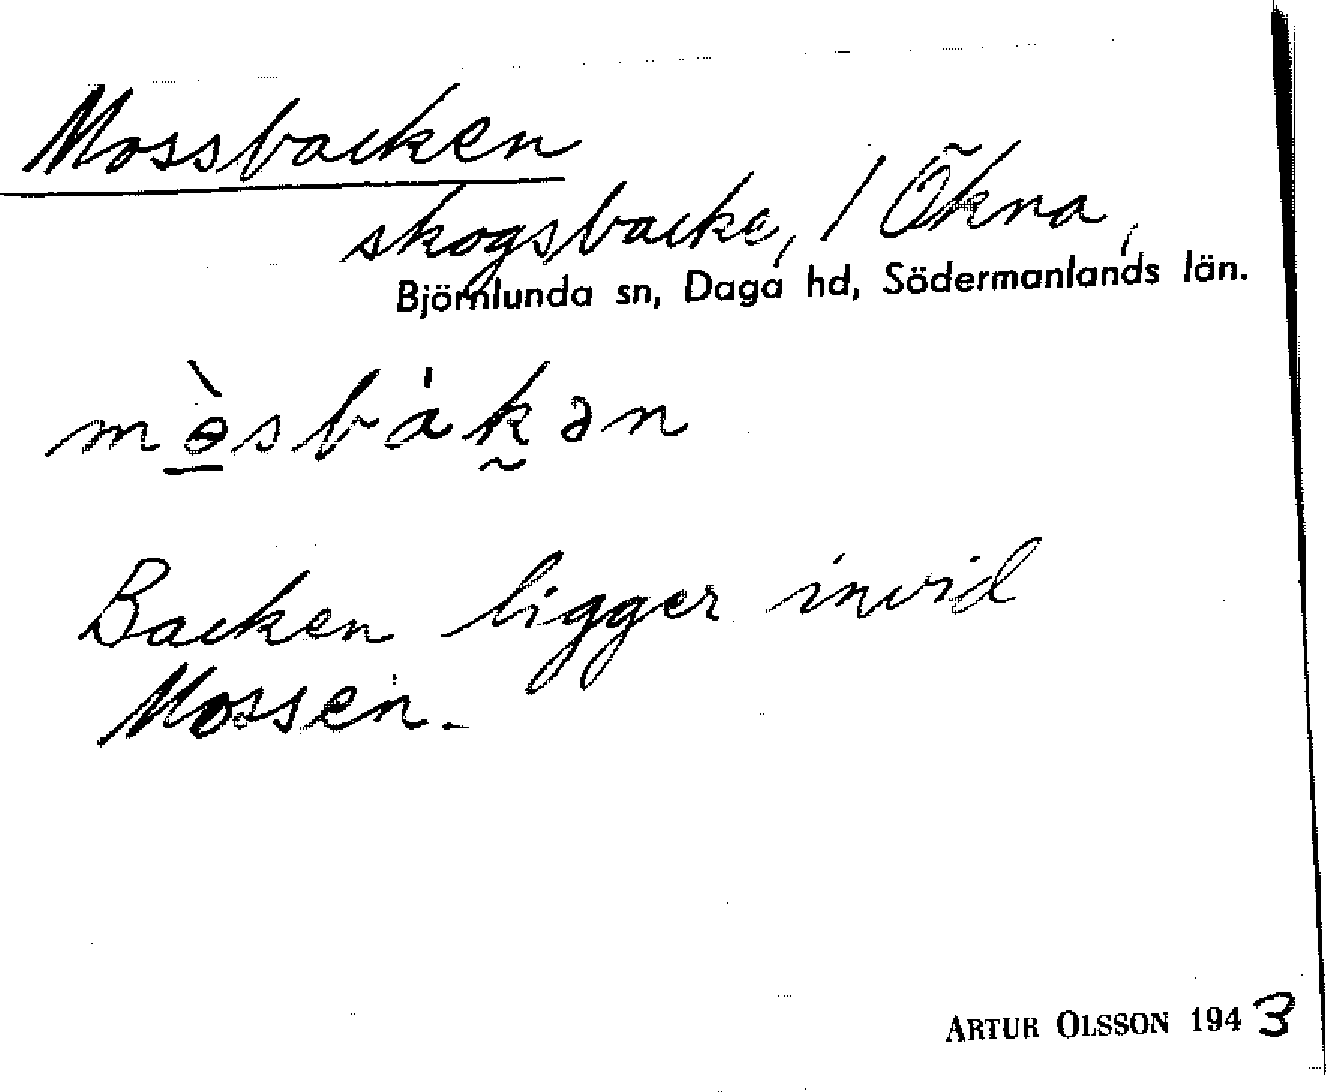 Mossbacken
skogsbacke, / Ökna,
Björnlunda sn, Daga hd, Södermanlands län.
mɵ̀sbákən
Backen ligger invid
Mossen.
ARTUR OLSSON 1943